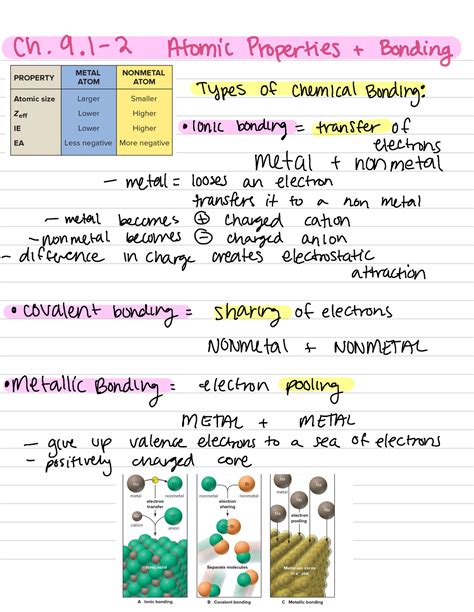 Ch. 9.1-2 Atomic Properties + Bonding
PROPERTY METAL ATOM NONMETAL ATOM
Atomic size Larger Smaller
Zeff Lower Higher
IE Lower Higher
EA Less negative More negative
Types of Chemical Bonding:
• Ionic bonding = transfer of
electrons
metal + nonmetal
- metal = looses an electron
transfers it to a non metal
- metal becomes ⊕ charged cation
- nonmetal becomes ⊖ charged anion
- difference in charge creates electrostatic
attraction
• covalent bonding = sharing of electrons
NONMetal + NONMETAL
• Metallic Bonding = electron pooling
METAL + METAL
- give up valence electrons to a sea of electrons
- positively charged core
metal nonmetal
electron transfer
cation anion
Ionic solid
A Ionic bonding
nonmetal nonmetal
electron sharing
Separate molecules
B Covalent bonding
metal
electron pooling
C Metallic bonding